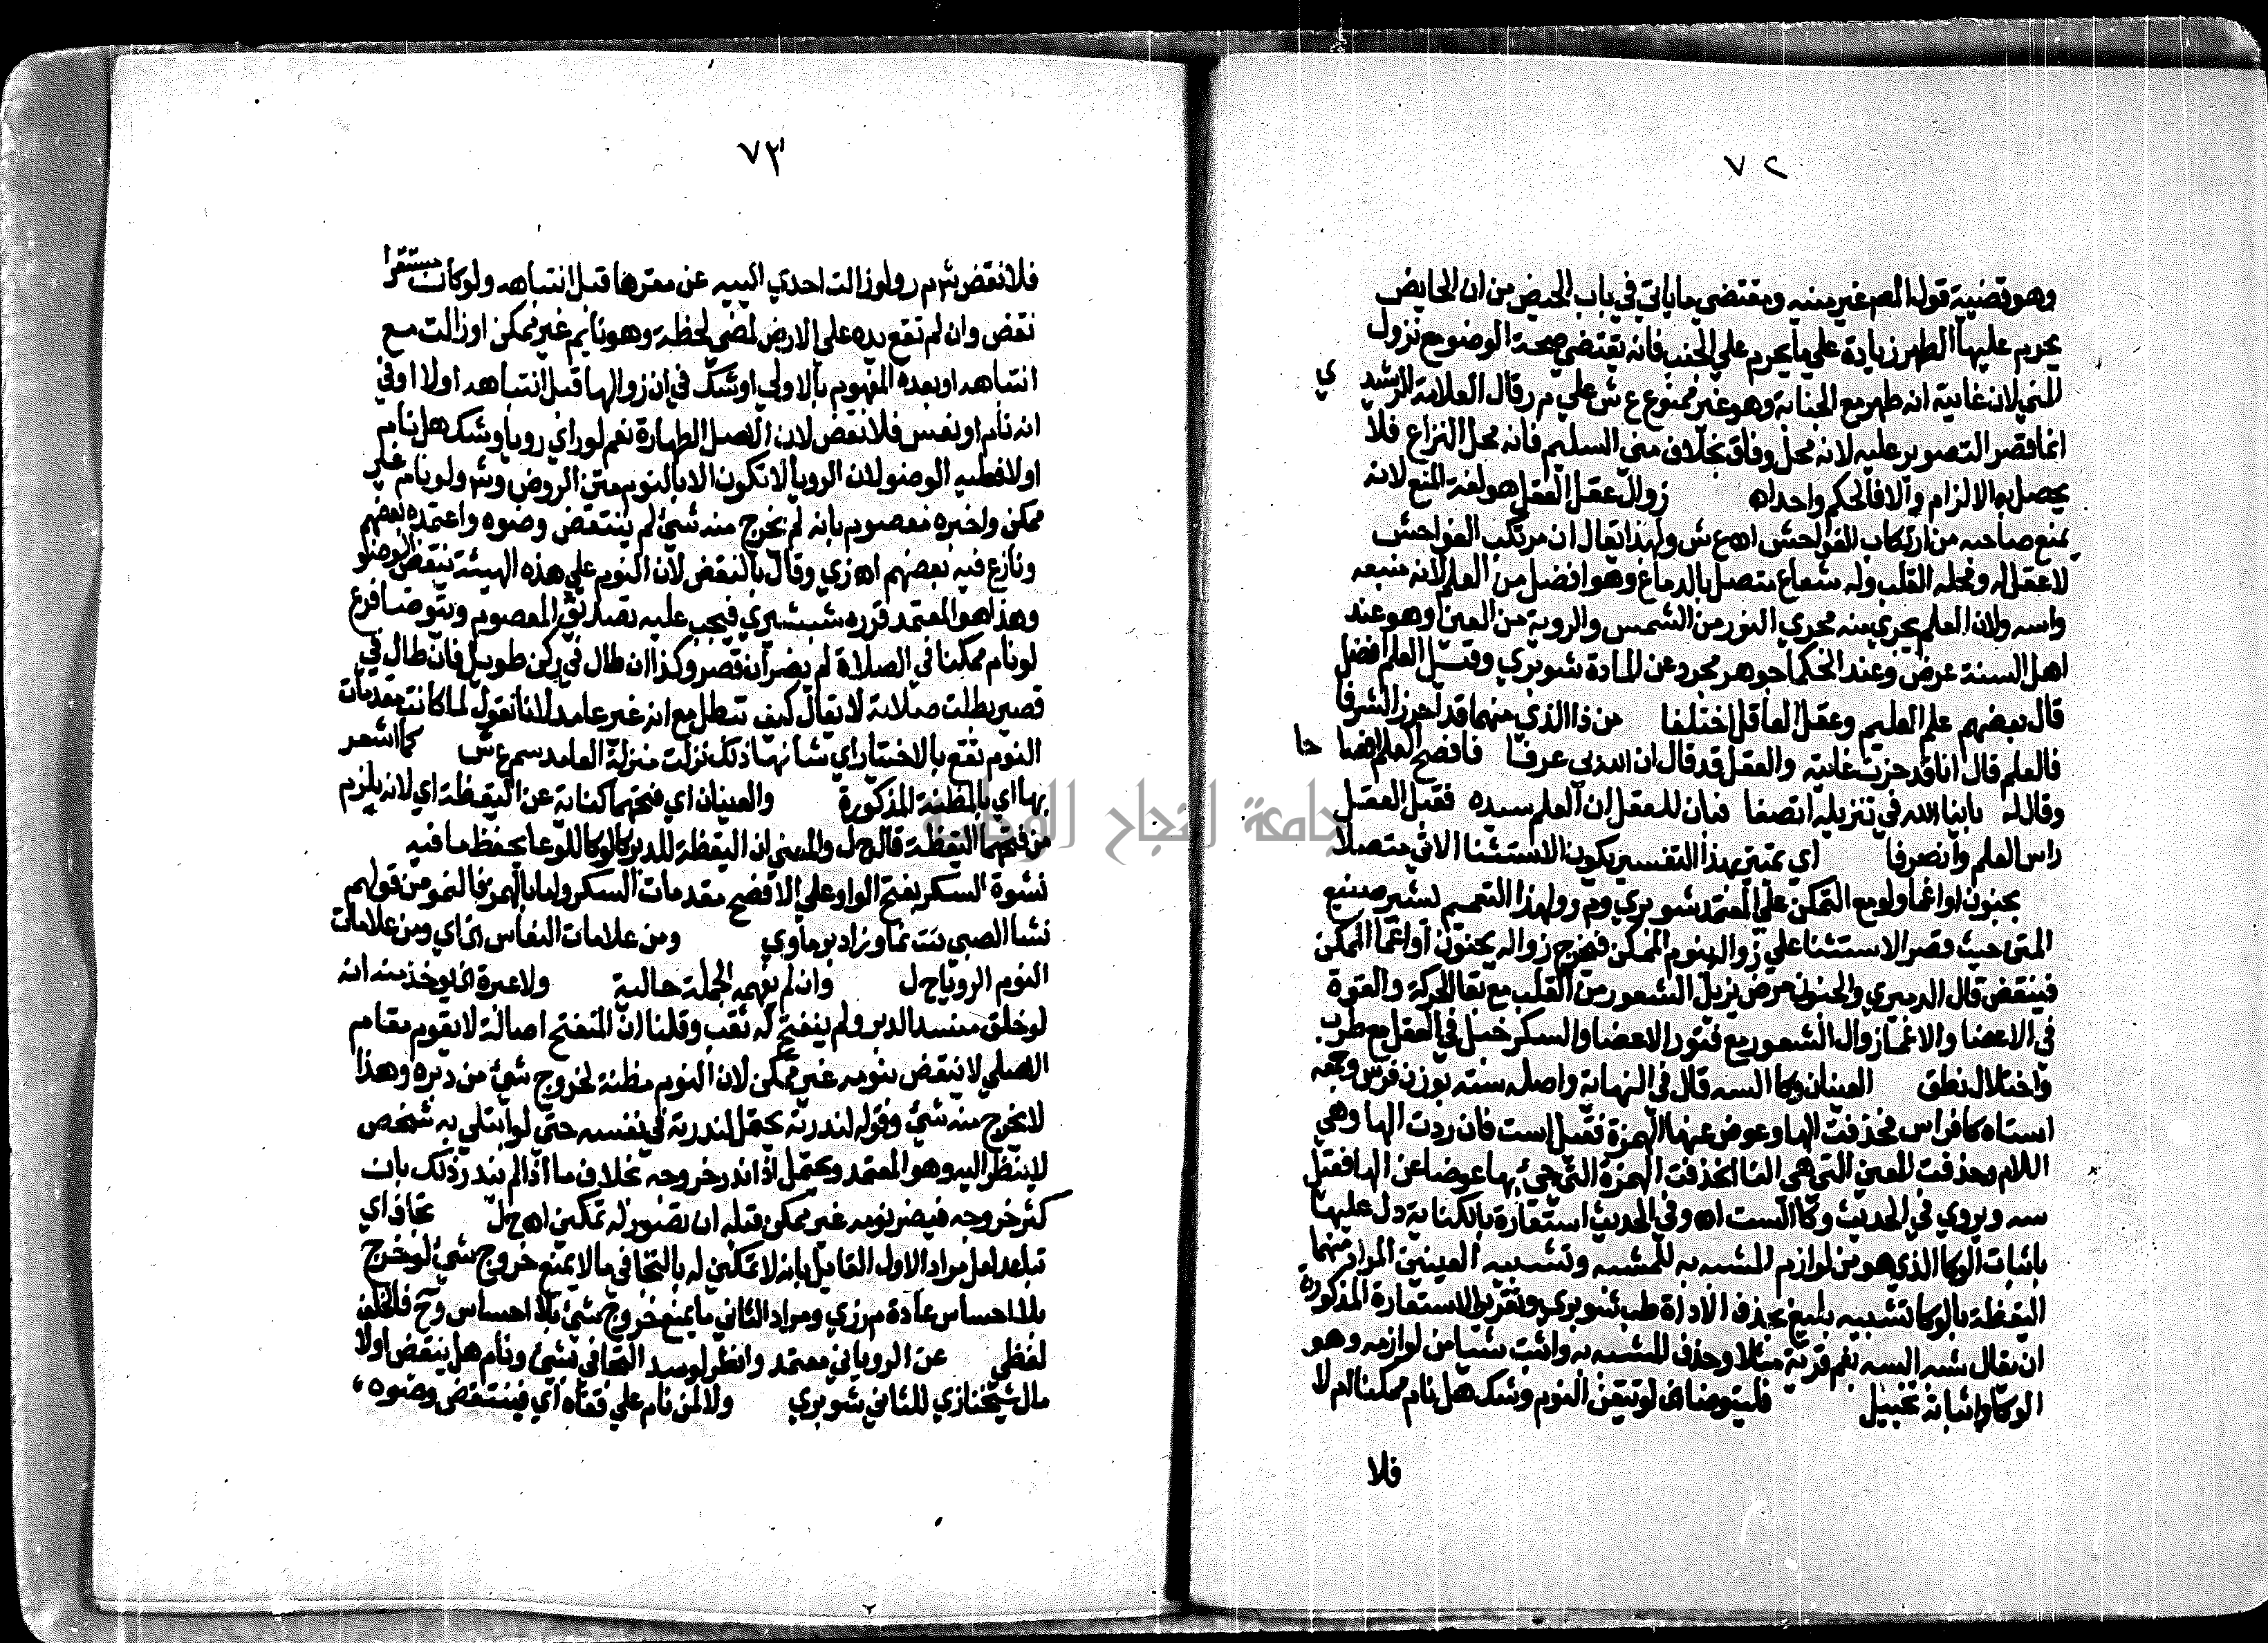 ٧٢
وهو قضية قوله المص غير منيه ومقتضى ما ياتي في باب الحيض من ان الحايض
يحرم عليها الطهر زيادة علي ما يحرم علي الجنب فانه يقتضي صحة الوضو مع نزول
المني لان غايته انه طهر مع الجنابة وهو غير ممنوع ع ش علي م ر وقال العلامة الرشيدي
انما قصر التصوير عليه لانه محل وفاق بخلاف مني السليم فانه محل النزاع فلا
يحصل به الالزام والا فالحكم واحد اه زوال عقل العقل هو لغة المنع لانه
يمنع صاحبه من ارتكاب الفواحش اه ع ش ولهذا يقال ان مرتكب الفواحش
لا عقل له ومحله القلب وله شعاع متصل بالدماغ وهو افضل من العلم لانه منبعه
واسه ولان العلم يجري منه مجري النور من الشمس والروية من العين وهو عند
اهل السنة عرض وعند الحكما جوهر مجرد عن المادة شوبري وقيل العلم افضل
قال بعضهم علم العليم وعقل العاقل اختلفا من ذا الذي منهما قد احرز الشرفا
فالعلم قال انا قد حزت غايته والعقل قد قال ان الله بي عرفا فافصح العلم افصاحا
وقال له باينا الله في تنزيله اتصفا فبان للعقل ان العلم سيده فقبل العقل
راس العلم وانصرفا اي تمييز بهذا التفسير يكون الاستثنا الاتي متصلا
بجنون او اغما ولو مع التمكن علي المعتمد شوبري وم ر ولهذا التعميم يشير صنيع
المتن حيث قصر الاستثنا علي زواله بنوم الممكن فخرج زواله بجنون او اغما الممكن
فينقض قال الدميري والجنون مرض يزيل الشعور من القلب مع بقا الحركة والقوة
في الاعضا والاغما زوال الشعور مع فتور الاعضا والسكر خبل في العقل مع طرب
واختلال نطق العينان وكا السه قال في النهاية واصله سته بوزن فرس وجمعه
استاه كافراس فحذفت الها وعوض عنها الهمزة فقيل است فان ردت الها وهي
اللام وحذفت العين التي هي التا انحذفت الهمزة التي جئ بها عوضا عن الها فقيل
سه ويروي في الحديث وكا الست اه وفي الحديث استعارة بالكناية دل عليها
باثبات الوكا الذي هو من لوازم المشبه به للمشبه وتشبيه العينين المراد منهما
اليقظة بالوكا تشبيه بليغ بحذف الاداة طب شوبري وتقرير الاستعارة المذكورة
ان يقال شبه السه بفم قربة مثلا وحذف المشبه به واثبت شيا من لوازمه وهو
الوكا واثباته تخييل فليتوضا اي لو تيقن النوم وشك هل نام ممكنا ام لا
فلا
٧٣
فلا نقض شرح م ر ولو زالت احدي اليتيه عن مقرها قبل انتباهه ولو كان مستقرا
نقض وان لم تقع يده علي الارض لمضي لحظة وهو نايم غير ممكن او زالت مع
انتباهه او بعده المفهوم بالاولي او شك في ان زوالها قبل انتباهه او لا او في
انه نام او نعس فلا نقض لان الاصل الطهارة نعم لو راي رويا وشك هل نام
او لا فعليه الوضو لان الرويا لا تكون الا بالنوم متن الروض وش ولو نام غير
ممكن واخبره معصوم بانه لم يخرج منه شئ لم ينتقض وضوه واعتمده بعضهم
ونازع فيه بعضهم اه زي وقال بالنقض لان النوم علي هذه الهيئة ينقض الوضو
وهذا هو المعتمد قرره شبشيري فيجب عليه تصديق المعصوم ويتوضا فرع
لو نام ممكنا في الصلاة لم يضر ان قصر وكذا ان طال في ركن طويل فان طال في
قصير بطلت صلاته لا يقال كيف تبطل مع انه غير عامد لانا نقول لما كانت مقدمات
النوم تقع بالاختيار اي شانها ذلك نزلت منزلة العامد سم ع ش كما اشعر
بها اي بالمظنة المذكورة والعينان اي فتحهما كناية عن اليقظة اي لانه يلزم
من فتحهما اليقظة قاله ح ل والمعني ان اليقظة للدبر كالوكا للوعا يحفظ ما فيه
نشوة السكر بفتح الواو علي الافصح مقدمات السكر واما بالهمز فالنمو من قولهم
نشا الصبي نبت نما وزاد برماوي ومن علامات النعاس الخ اي ومن علامات
النوم الرويا ح ل وان لم يفهمه الجملة حالية ولا عبرة الخ يوخذ منه انه
لو خلق منسد الدبر ولم ينفتح له ثقب وقلنا ان المنفتح اصالة لا يقوم مقام
الاصلي لا ينقض بنومه غير ممكن لان النوم مظنة لخروج شئ من دبره وهذا
لا يخرج منه شئ وقوله لندرته يحتمل لندرته في نفسه حتي لو ابتلي به شخص
لا ينظر اليه وهو المعتمد ويحتمل اذا ندر خروجه بخلاف ما اذا لم يندر ذلك بان
كثر خروجه فيضر نومه غير ممكن قبله ان تصور له تمكين اه ح ل تجاف اي
تباعد لعل مراد الاول القايل بانه لا تمكين له بالتجافي ما لا يمنع خروج شئ لو خرج
بلا احساس عادة م ر زي ومراد الثاني ما يمنع خروج شئ بلا احساس وح فالخلف
لفظي عن الروياني معتمد وانظر لو سد التجافي بشئ ونام هل ينقض او لا
مال شيخنا زي للثاني شوبري ولا لمن نام علي قفاه اي فينتقض وضوه
جامعة النجاح الوطنية